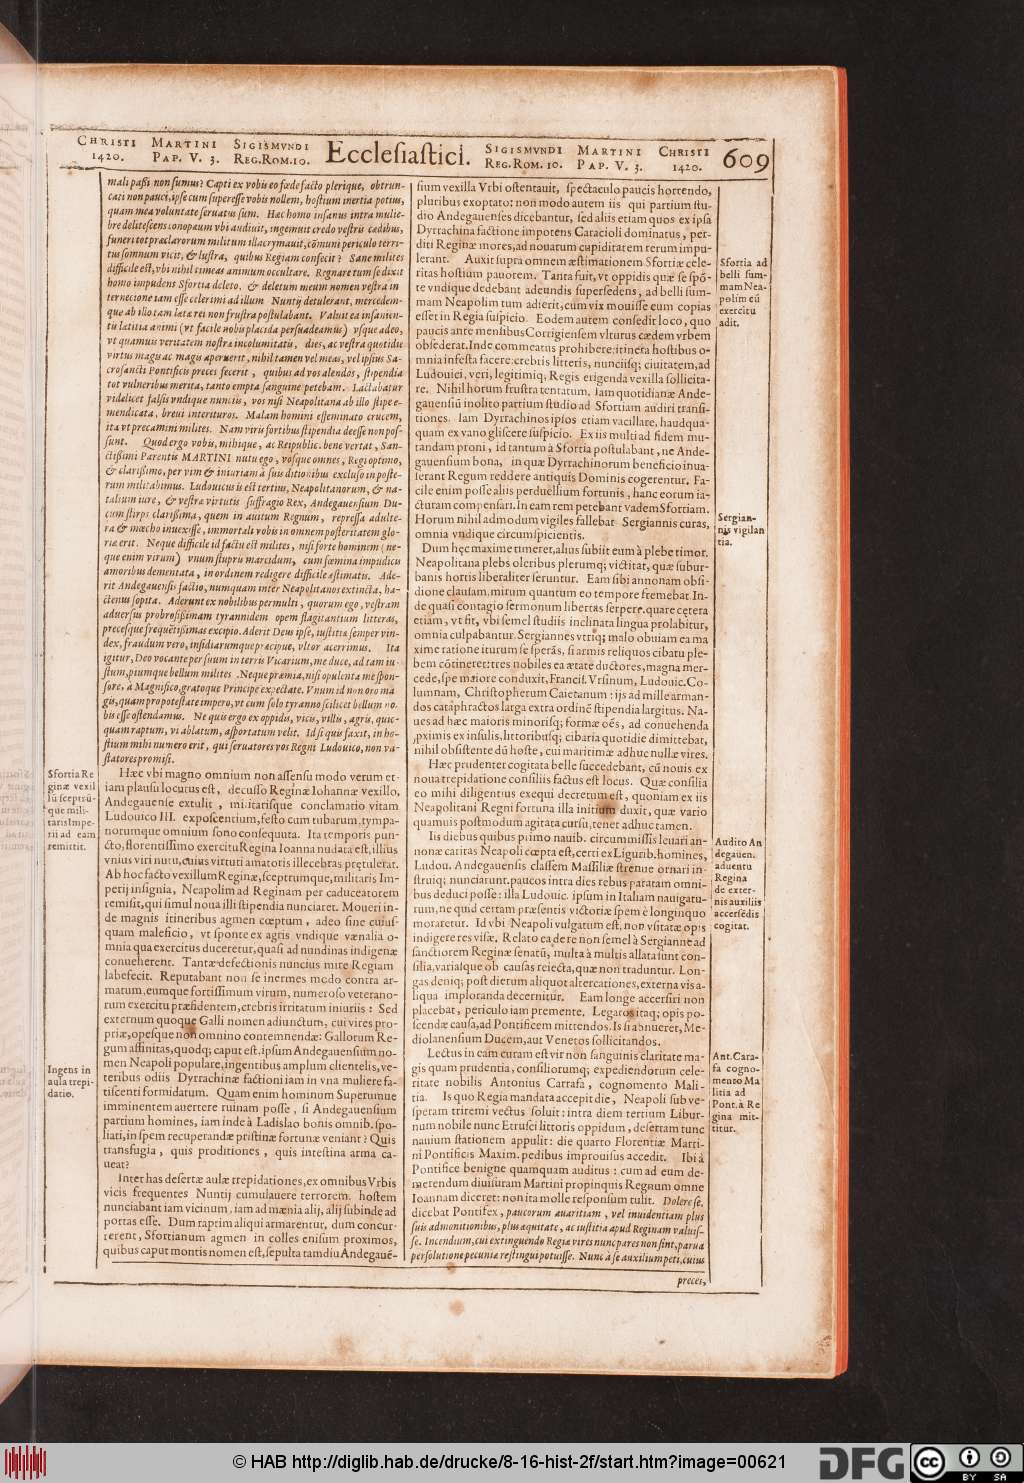 CHRISTI MARTINI SIGISMVNDI Ecclesiastici. SIGISMVNDI MARTINI CHRISTI 609
1420. PAP. V. 3. REG. ROM. 10. REG. ROM. 10. PAP. V. 3. 1420.
mali passi non sumus? Capti ex vobis eo fœde facto plerique, obtrun-
cati non pauci, ipse cum superesse vobis nollem, hostium inertia potius,
quam mea voluntate seruatus sum. Hæc homo insanus intra mulie-
bre delitescens conopæum vbi audiuit, ingemuit credo vestris cædibus,
funeri tot præclarorum militum illacrymauit, cōmuni periculo terri-
tus somnum vicit, & lustra, quibus Regiam confecit? Sane milites
difficile est, vbi nihil timeas animum occultare. Regnare tum se dixit
homo impudens Sfortia deleto, & deletum meum nomen vestra in-
ternecione iam esse celerimi ad illum Nuntij detulerant, mercedem-
que ab illo tam lætæ rei non frustra postulabant. Valuit ea insanien-
tis lætitia animi (vt facile nobis placida persuadeamus) vsque adeo,
vt quamuis veritatem nostra incolumitatis, dies, ac vestra quotidie
virtus magis ac magis aperuerit, nihil tamen vel meæ, vel ipsius Sa-
crosancti Pontificis preces fecerit, quibus ad vos alendos, stipendia
tot vulneribus merita, tanto empta sanguine petebam. Lactabatur
videlicet falsis vndique nunciis, vos nisi Neapolitana ab illo stipe e-
mendicata, breui interituros. Malam homini effeminato crucem,
ita vt precamini milites. Nam viris fortibus stipendia deesse non pos-
sunt. Quod ergo vobis, mihique, ac Reipublic. bene vertat, San-
ctissimi Parentis MARTINI nutu ego, vosque omnes, Regi optimo,
& clarissimo, per vim & iniuriam à suis ditionibus excluso in poste-
rum militabimus. Ludouicus is est tertius, Neapolitanorum, & na-
talium iure, & vestræ virtutis suffragio Rex, Andegauensium Du-
cum stirps clarissima, quem in auitum Regnum, repressa adulte-
ra & mœcho inuexisse, immortale vobis in omnem posteritatem glo-
riæ erit. Neque difficile id factu est milites, nisi forte hominem (ne-
que enim virum) vnum stupris marcidum, cum fœmina impudicis
amoribus dementata, in ordinem redigere difficile æstimatis. Ade-
rit Andegauensis factio, numquam inter Neapolitanos extincta, ha-
ctenus sopita. Aderunt ex nobilibus permulti, quorum ego, vestram
aduersus probrosissimam tyrannidem opem flagitantium litteras,
precesque frequētissimas excipio. Aderit Deus ipse, iustitiæ semper vin-
dex, fraudum vero, insidiarumque præcipue, vltor acerrimus. Ita
igitur, Deo vocante per suum in terris Vicarium, me duce, ad tam iu-
stum, piumque bellum milites. Neque præmia, nisi opulenta me spon-
sore, à Magnifico, gratoque Principe expectate. Vnum id non oro ma-
gis, quam pro potestate impero, vt cum solo tyranno scilicet bellum no-
bis esse ostendamus. Ne quis ergo ex oppidis, vicis, villis, agris, quic-
quam raptum, vi ablatum, asportatum velit. Id si quis faxit, in ho-
stium mihi numero erit, qui seruatores vos Regni Ludouico, non va-
statores promisi.
Hæc vbi magno omnium non assensu modo verum et-
iam plausu locutus est, decusso Reginæ Iohannæ vexillo,
Andegauense extulit, militarisque conclamatio vitam
Ludouico III. exposcentium, festo cum tubarum, tympa-
norumque omnium sono consequuta. Ita temporis pun-
cto, florentissimo exercitu Regina Ioanna nudata est, illius
vnius viri nutu, cuius virtuti amatoris illecebras prętulerat.
Ab hoc facto vexillum Reginæ, sceptrumque, militaris Im-
perij insignia, Neapolim ad Reginam per caduceatorem
remisit, qui simul noua illi stipendia nunciaret. Moueri in-
de magnis itineribus agmen cœptum, adeo sine cuius-
quam maleficio, vt sponte ex agris vndique vænalia o-
mnia qua exercitus duceretur, quasi ad nundinas indigenæ
conueherent. Tantæ defectionis nuncius mire Regiam
labefecit. Reputabant non se inermes modo contra ar-
matum, eumque fortissimum virum, numeroso veterano-
rum exercitu præsidentem, crebris irritatum iniuriis: Sed
externum quoque Galli nomen adiunctum, cui vires pro-
priæ, opesque non omnino contemnendæ: Gallorum Re-
gum affinitas, quodq; caput est, ipsum Andegauensium no-
men Neapoli populare, ingentibus amplum clientelis, ve-
teribus odiis Dyrrachinæ factioni iam in vna muliere fa-
tiscenti formidatum. Quam enim hominum Superumue
imminentem auertere ruinam posse, si Andegauensium
partium homines, iam inde à Ladislao bonis omnib. spo-
liati, in spem recuperandæ pristinæ fortunæ veniant? Quis
transfugia, quis proditiones, quis intestina arma ca-
ueat?
Inter has desertæ aulæ trepidationes, ex omnibus Vrbis
vicis frequentes Nuntij cumulauere terrorem, hostem
nunciabant iam vicinum, iam ad mœnia alij, alij subinde ad
portas esse. Dum raptim aliqui armarentur, dum concur-
rerent, Sfortianum agmen in colles enisum proximos,
quibus caput montis nomen est, sepulta tamdiu Andegauē-
Sfortia Re
ginæ vexil
lū sceptrū-
que mili-
taris Impe-
rii ad eam
remittit.
Ingens in
aula trepi-
datio.
sium vexilla Vrbi ostentauit, spectaculo paucis horrendo,
pluribus exoptato: non modo autem iis qui partium stu-
dio Andegauenses dicebantur, sed aliis etiam quos ex ipsa
Dyrrachina factione impotens Caracioli dominatus, per-
diti Reginæ mores, ad nouarum cupiditatem rerum impu-
lerant. Auxit supra omnem æstimationem Sfortiæ cele-
ritas hostium pauorem. Tanta fuit, vt oppidis quæ se spō-
te vndique dedebant adeundis supersedens, ad belli sum-
mam Neapolim tum adierit, cum vix mouisse eum copias
esset in Regia suspicio. Eodem autem consedit loco, quo
paucis ante mensibus Corrigiensem vlturus cædem vrbem
obsederat. Inde commeatus prohibere: itinera hostibus o-
mnia infesta facere: crebris litteris, nunciisq; ciuitatem, ad
Ludouici, veri, legitimiq; Regis erigenda vexilla sollicita-
re. Nihil horum frustra tentatum. Iam quotidianæ Ande-
gauensiū inolito partium studio ad Sfortiam audiri transi-
tiones. Iam Dyrrachinos ipsos etiam vacillare, haudqua-
quam ex vano gliscere suspicio. Ex iis multi ad fidem mu-
tandam proni, id tantum à Sfortia postulabant, ne Ande-
gauensium bona, in quæ Dyrrachinorum beneficio inua-
serant Regum reddere antiquis Dominis cogerentur. Fa-
cile enim posse aliis perduellium fortunis, hanc eorum ia-
cturam compensari. In eam rem petebant vadem Sfortiam.
Horum nihil admodum vigiles fallebat Sergiannis curas,
omnia vndique circumspicientis.
Dum hęc maxime timeret, alius subiit eum à plebe timor.
Neapolitana plebs oleribus plerumq; victitat, quæ subur-
banis hortis liberaliter seruntur. Eam sibi annonam obsi-
dione clausam, mirum quantum eo tempore fremebat. In-
de quasi contagio sermonum libertas serpere, quare cętera
etiam, vt fit, vbi semel studiis inclinata lingua prolabitur,
omnia culpabantur. Sergiannes vtriq; malo obuiam ea ma
xime ratione iturum se sperās, si armis reliquos cibatu ple-
bem cōtineret: tres nobiles ea ætate ductores, magna mer-
cede, spe maiore conduxit, Francis. Vrsinum, Ludouic. Co-
lumnam, Christopherum Caietanum: ijs ad mille arman-
dos cataphractos larga extra ordinē stipendia largitus. Na-
ues ad hæc maioris minorisq; formæ oēs, ad conuehenda
proximis ex insulis, littoribusq; cibaria quotidie dimittebat,
nihil obsistente dū hoste, cui maritimæ adhuc nullæ vires.
Hæc prudenter cogitata belle succedebant, cū nouis ex
noua trepidatione consiliis factus est locus. Quæ consilia
eo mihi diligentius exequi decretum est, quoniam ex iis
Neapolitani Regni fortuna illa initium duxit, quæ vario
quamuis postmodum agitata cursu, tenet adhuc tamen.
Iis diebus quibus primo nauib. circummissis leuari an-
nonæ caritas Neapoli cœpta est, certi ex Ligurib. homines,
Ludou. Andegauensis classem Massiliæ strenue ornari in-
strui q; nunciarunt, paucos intra dies rebus paratam omni-
bus deduci posse: illa Ludouic. ipsum in Italiam nauigatu-
rum, ne quid certam præsentis victoriæ spem è longinquo
moraretur. Id vbi Neapoli vulgatum est, non vsitatæ opis
indigere res visæ. Relato ea de re non semel à Sergianne ad
sanctiorem Reginæ senatū, multa à multis allata sunt con-
silia, variasque ob causas reiecta, quæ non traduntur. Lon-
gas deniq; post dierum aliquot altercationes, externa vis a-
liqua imploranda decernitur. Eam longe accersiri non
placebat, periculo iam premente. Legatos itaq; opis po-
scendæ causa, ad Pontificem mittendos. Is si abnueret, Me-
diolanensium Ducem, aut Venetos sollicitandos.
Lectus in eam curam est vir non sanguinis claritate ma-
gis quam prudentia, consiliorumq; expediendorum cele-
ritate nobilis Antonius Carrafa, cognomento Mali-
tia. Is quo Regia mandata accepit die, Neapoli sub ve-
speram triremi vectus soluit: intra diem tertium Libur-
num nobile nunc Etrusci littoris oppidum, desertam tunc
nauium stationem appulit: die quarto Florentiæ Marti-
ni Pontificis Maxim. pedibus improuisus accedit. Ibi à
Pontifice benigne quamquam auditus: cum ad eum de-
merendum diuisuram Martini propinquis Regnum omne
Ioannam diceret: non ita molle responsum tulit. Dolere se,
dicebat Pontifex, paucorum auaritiam, vel inuidentiam plus
suis admonitionibus, plus æquitate, ac iustitia apud Reginam valuis-
se. Incendium, cui extinguendo Regiæ vires nunc pares non sint, parua
persolutione pecuniæ restingui potuisse. Nunc à se auxilium peti, cuius
preces,
Sfortia ad
belli sum-
mam Nea-
polim cū
exercitu
adit.
Sergian-
nis vigilan
tia.
Audito An
degauen.
aduentu
Regina
de exter-
nis auxiliis
accersēdis
cogitat.
Ant. Cara-
fa cogno-
mento Ma
litia ad
Pont. à Re
gina mit-
titur.
© HAB http://diglib.hab.de/drucke/8-16-hist-2f/start.htm?image=00621
DFG cc BY SA